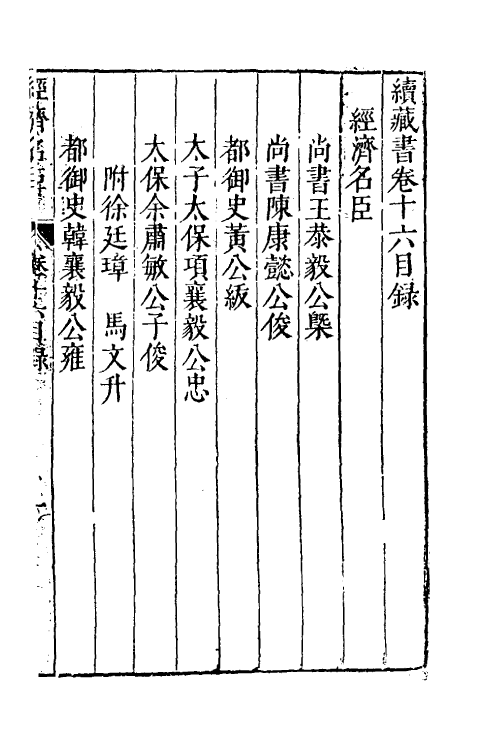 續藏書卷十六目錄
經濟名臣
尚書王恭毅公槩
尚書陳康懿公俊
都御史黃公紱
太子太保項襄毅公忠
太保余肅敏公子俊
附徐廷璋 馬文升
都御史韓襄毅公雍
經濟名臣 卷十六目錄